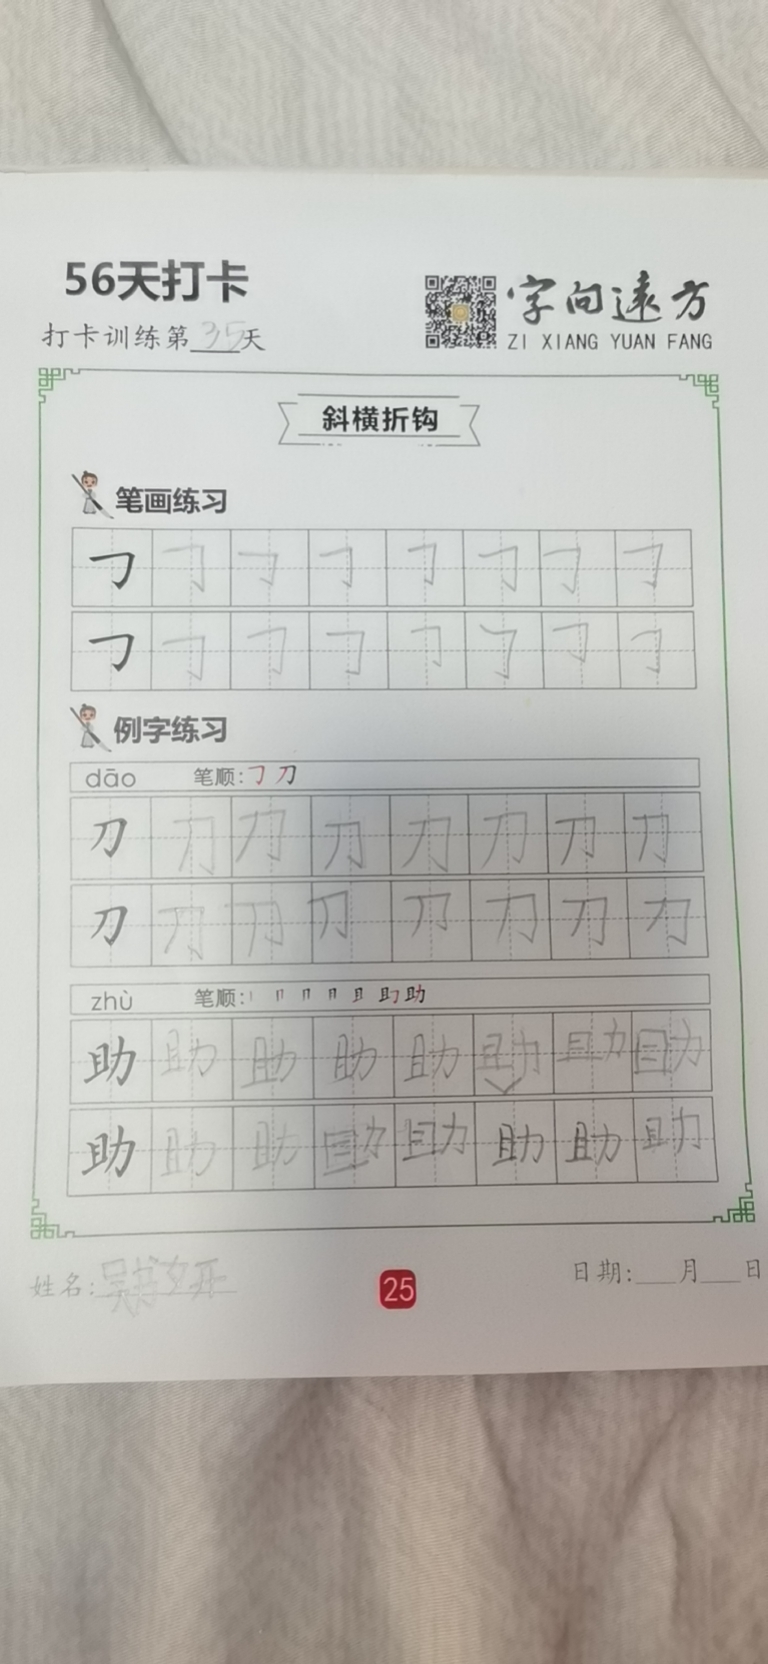 56天打卡
打卡训练第35天
字向遠方
ZI XIANG YUAN FANG
斜横折钩
笔画练习
㇆ ㇆ ㇆ ㇆ ㇆ ㇆ ㇆ ㇆
㇆ ㇆ ㇆ ㇆ ㇆ ㇆ ㇆ ㇆
例字练习
dāo 笔顺: ㇆ 刀
刀 刀 刀 刀 刀 刀 刀 刀
刀 刀 刀 刀 刀 刀 刀 刀
zhù 笔顺: 丨 冂 月 月 且 助 助
助 助 助 助 助 助 助 助
助 助 助 助 助 助 助 助
姓名:
25
日期:___月___日